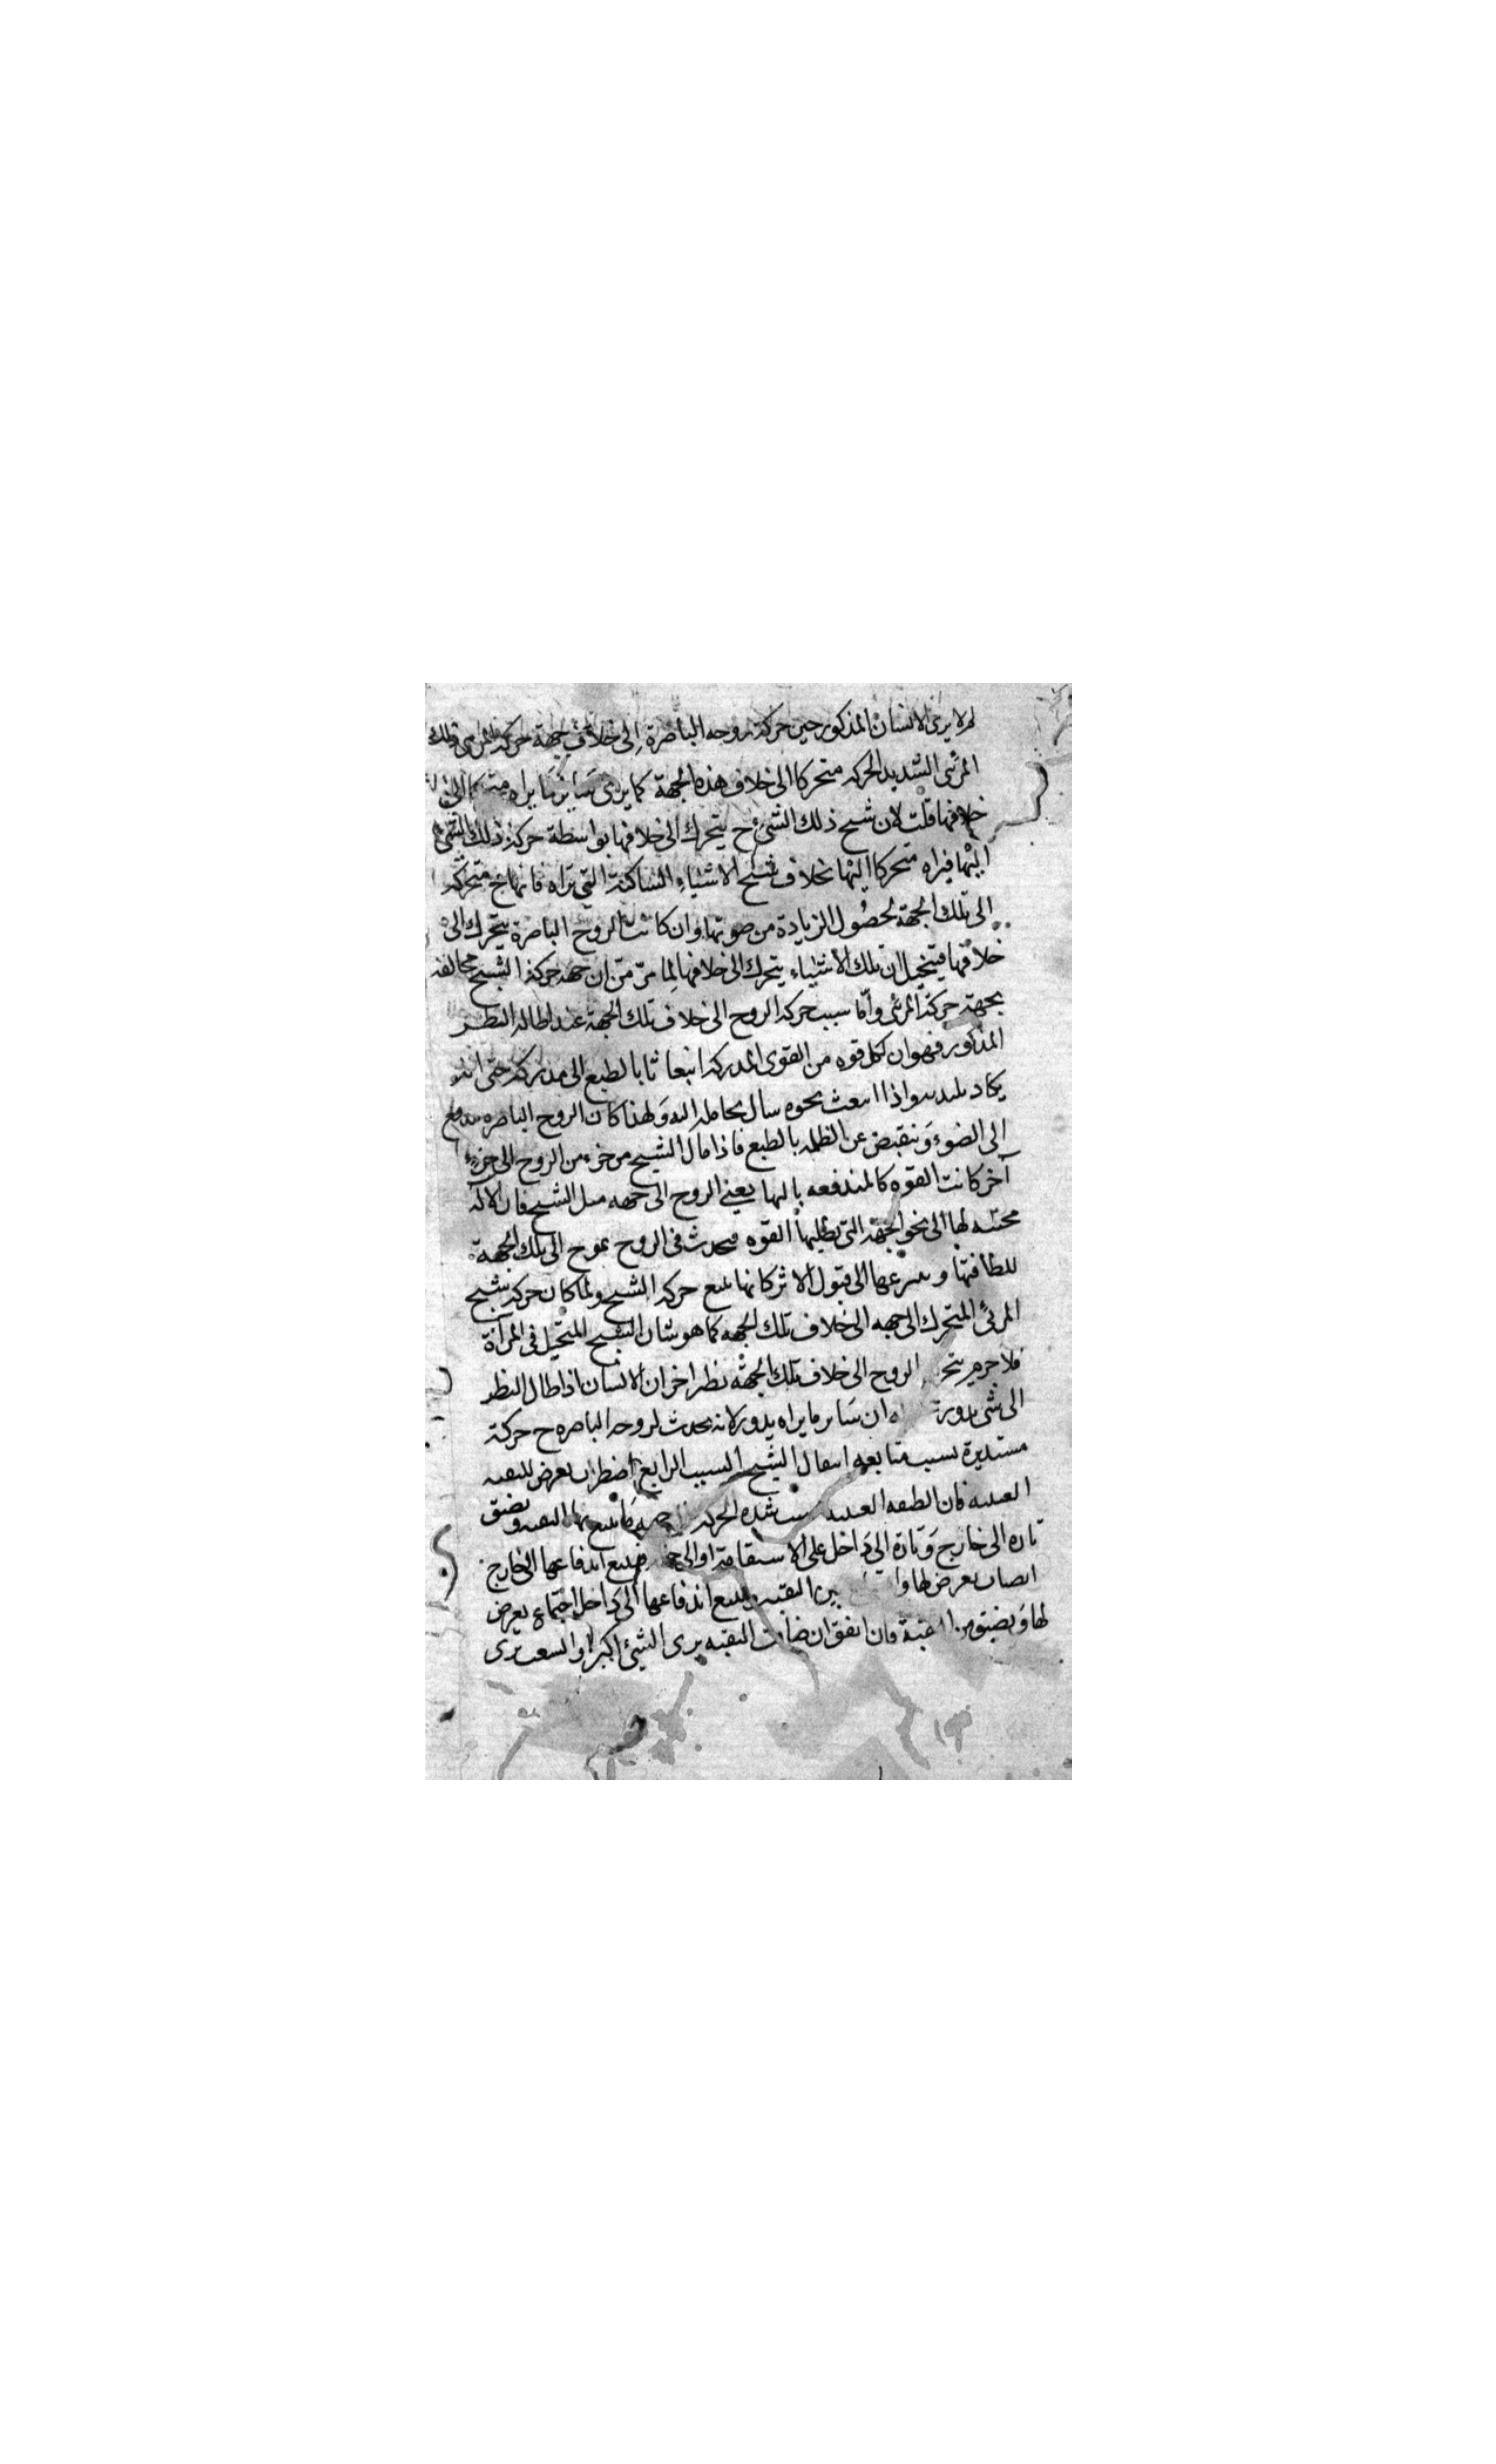 لم لا يرى الانسان المذكور حين حركة روحه الباصرة الى خلاف جهة حركة المرئى ذلك
المرئى الشديد الحركه متحركا الى خلاف هذه الجهة كما يرى سائر ما يراه الى
خلافها قلت لان شبح ذلك الشئ ح يتحرك الى خلافها بواسطة حركة ذلك الشئ
اليها فيراه متحركا اليها بخلاف شبح الاشياء الساكنة التى تراه فانها ح متحركه
الى تلك الجهة لحصول الزيادة من صوبها وان كانت الروح الباصرة يتحرك الى
خلافها فيتخيل ان تلك الاشياء يتحرك الى خلافها لما مرّ من ان جهه حركة الشبح مخالفه
بجهة حركة المرئى وأمّا سبب حركه الروح الى خلاف تلك الجهة عند اطاله النظر
المذكور فهو ان لكل قوه من القوى المدركه انبعاثا بالطبع الى مدركه حتى انه
يكاد واذا انبعث نحوه مال بحامله اليه ولهذا كان الروح الباصره مندفع
الى الضوء وتنقبض عن الظلمه بالطبع فاذا مال الشبح من جزء من الروح الى جزء
آخر كانت القوه كالمندفعه بالها يعنى الروح الى جهه ميل الشبح فان الاله
لها الى نحو الجهة التى يطلبها القوه فيحدث فى الروح تموج الى تلك الجهة
للطافتها وسرعتها الى قبول الاثر كانها تتبع حركه الشبح ولما كان حركه شبح
المرئى المتحرك الى جهه الى خلاف تلك الجهه كما هو شان الشبح المتخيل فى المرآة
فلا جرم الروح الى خلاف تلك الجهة نظرا خر ان الانسان اذا اطال النظر
الى شئ يدور ان سائر ما يراه يدور لانه يحدث لروحه الباصره ح حركة
مستديرة بسبب متابعه انتقال الشبح السبب الرابع اضطراب يعرض للثقبه
العنبيه فان الطبقه العنبيه شده الحركه تتبع بها الثقبه وتضيق
تاره الى خارج وتارة الى داخل على الاستقامة او الى فيتبع اندفاعها الى خارج
اتساع يعرض لها من الثقبه ويتبع اندفاعها الى داخل اجتماع يعرض
لها وتضيق من الثقبة فان اتفق ان ضاقت الثقبه يرى الشئ اكبر او اتسعت يرى